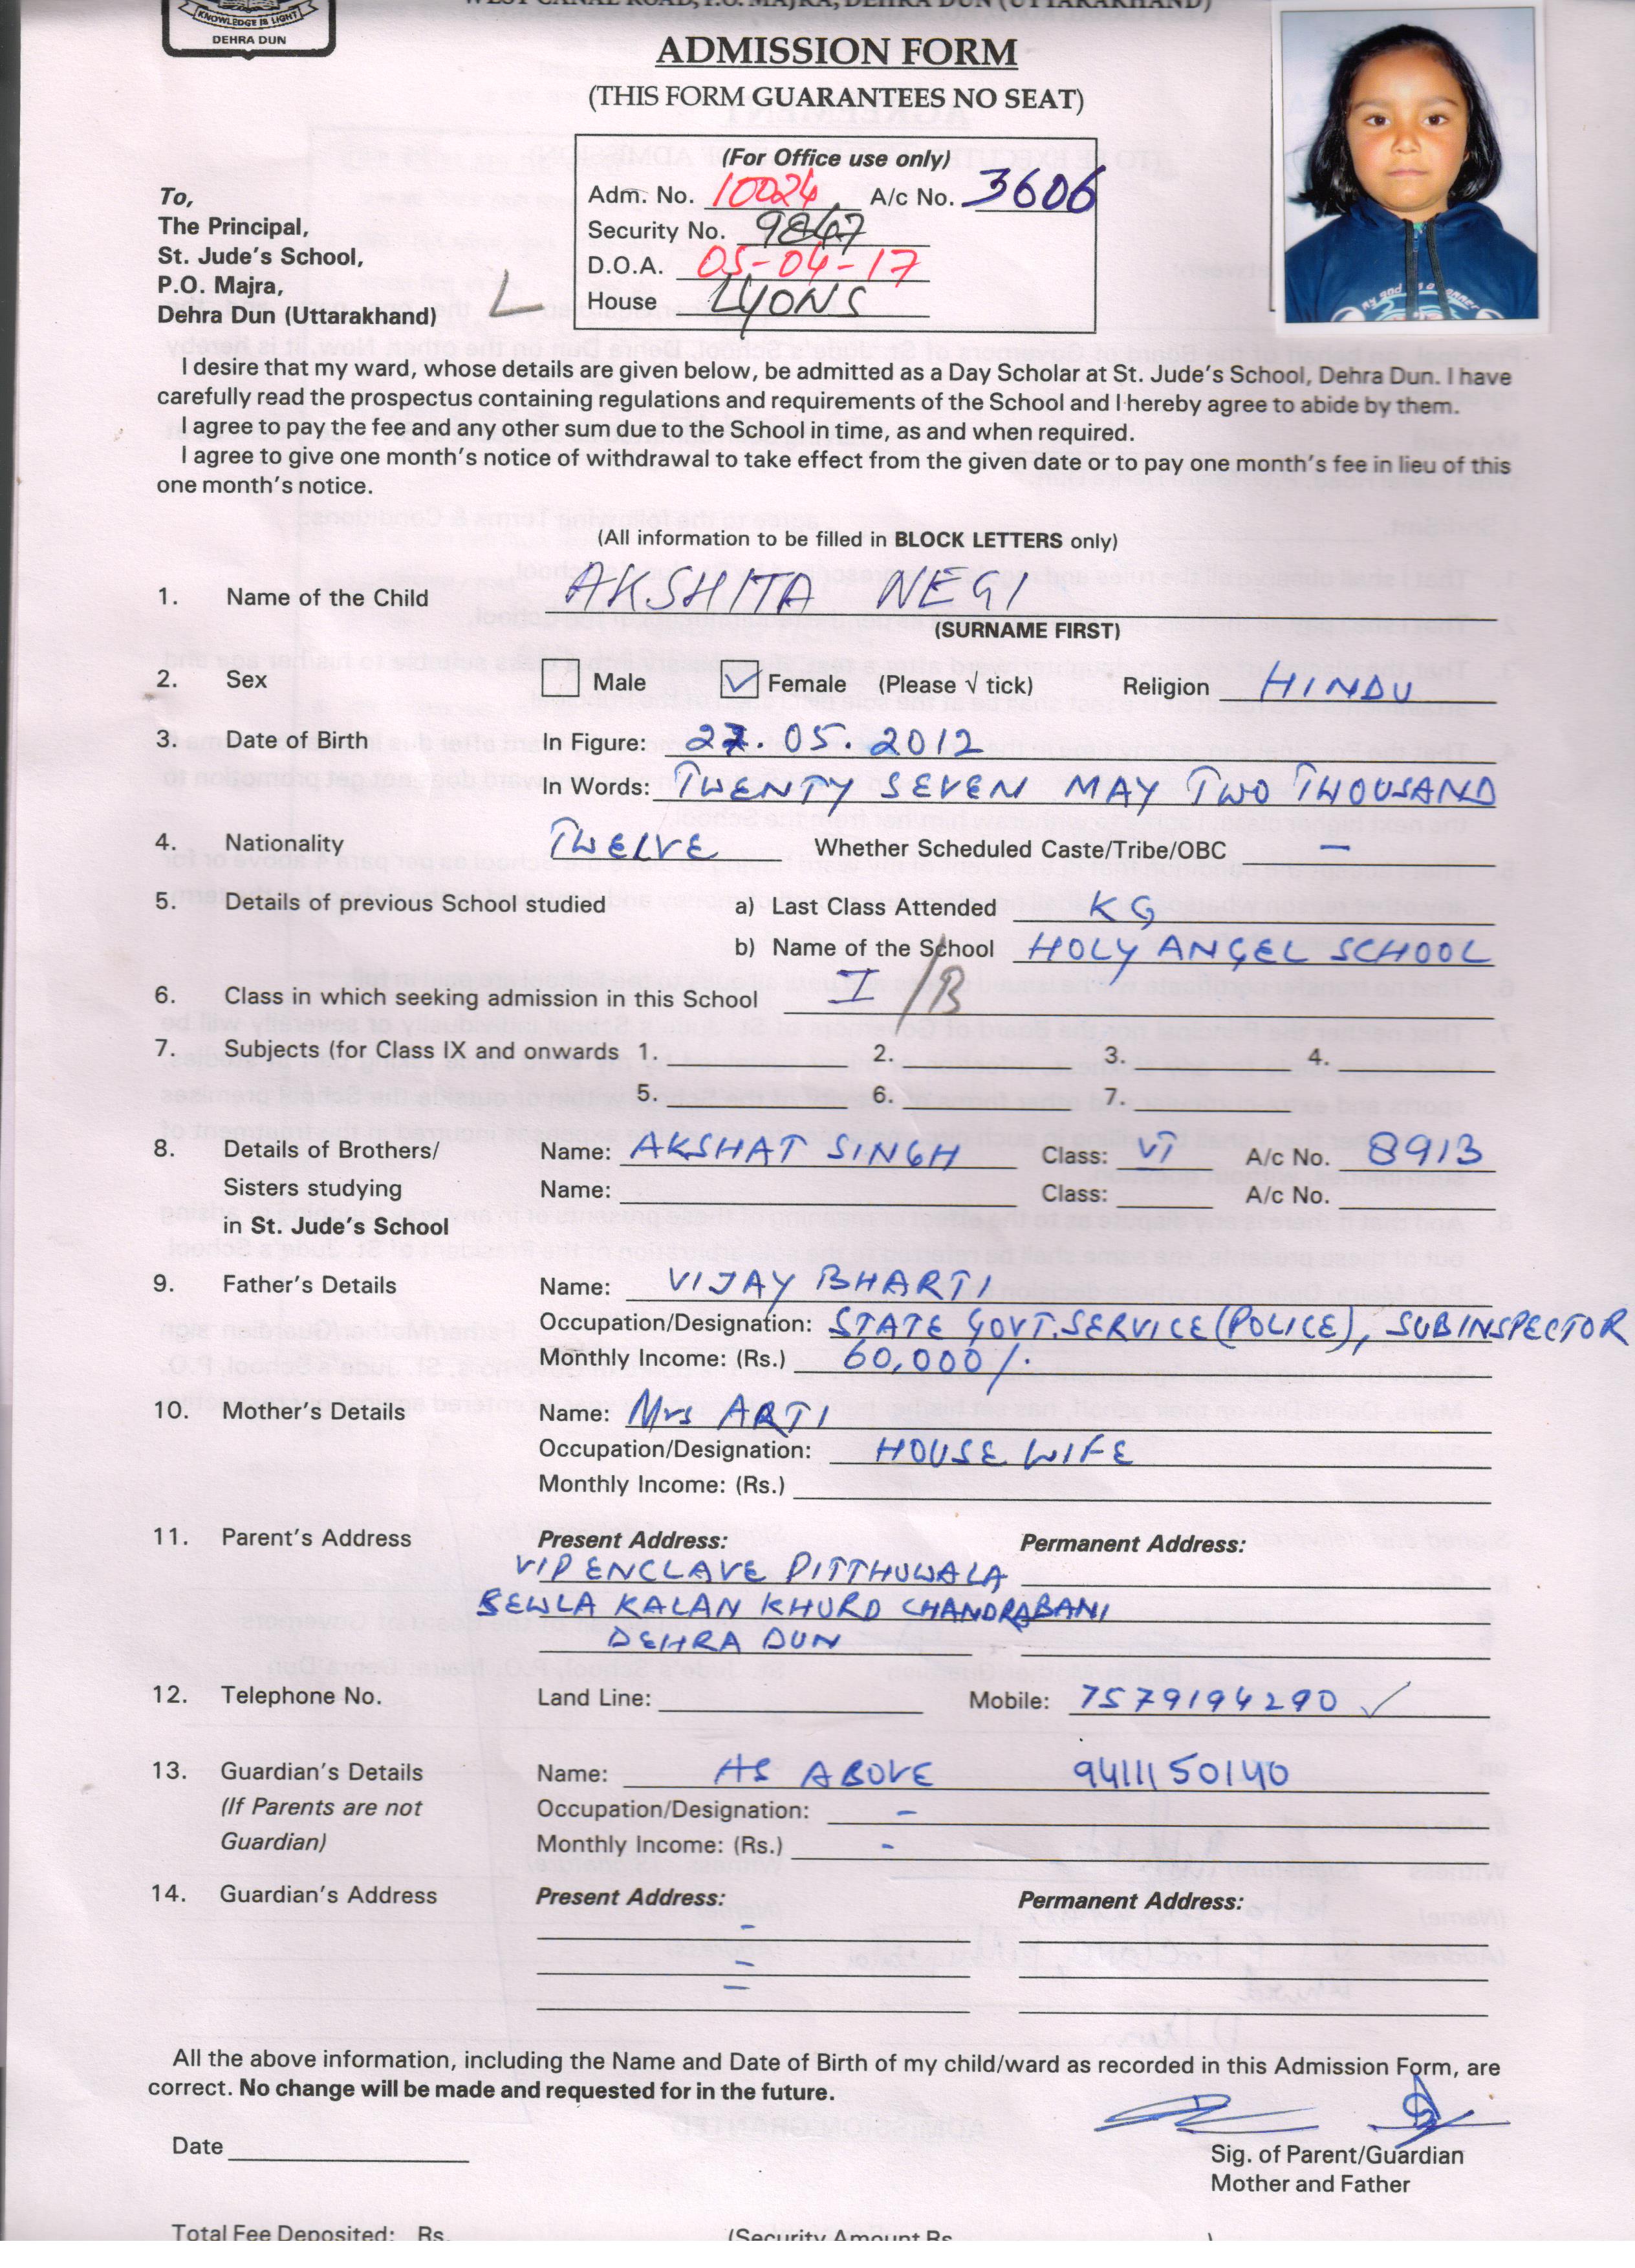 KNOWLEDGE IS LIGHT
DEHRA DUN
WEST CANAL ROAD, P.O. MAJRA, DEHRA DUN (UTTARAKHAND)
ADMISSION FORM
(THIS FORM GUARANTEES NO SEAT)
(For Office use only)
Adm. No. 10024 A/c No. 3606
Security No. 9847
D.O.A. 05-04-17
House LYONS
To,
The Principal,
St. Jude's School,
P.O. Majra,
Dehra Dun (Uttarakhand)
L
I desire that my ward, whose details are given below, be admitted as a Day Scholar at St. Jude's School, Dehra Dun. I have
carefully read the prospectus containing regulations and requirements of the School and I hereby agree to abide by them.
I agree to pay the fee and any other sum due to the School in time, as and when required.
I agree to give one month's notice of withdrawal to take effect from the given date or to pay one month's fee in lieu of this
one month's notice.
(All information to be filled in BLOCK LETTERS only)
1. Name of the Child AKSHITA NEGI
(SURNAME FIRST)
2. Sex Male ✓ Female (Please √ tick) Religion HINDU
3. Date of Birth In Figure: 27.05.2012
In Words: TWENTY SEVEN MAY TWO THOUSAND
4. Nationality TWELVE Whether Scheduled Caste/Tribe/OBC —
5. Details of previous School studied a) Last Class Attended KG
b) Name of the School HOLY ANGEL SCHOOL
6. Class in which seeking admission in this School I /B
7. Subjects (for Class IX and onwards 1. 2. 3. 4.
5. 6. 7.
8. Details of Brothers/ Name: AKSHAT SINGH Class: VI A/c No. 8913
Sisters studying Name: Class: A/c No.
in St. Jude's School
9. Father's Details Name: VIJAY BHARTI
Occupation/Designation: STATE GOVT. SERVICE (POLICE), SUBINSPECTOR
Monthly Income: (Rs.) 60,000/.
10. Mother's Details Name: Mrs ARTI
Occupation/Designation: HOUSE WIFE
Monthly Income: (Rs.)
11. Parent's Address Present Address: Permanent Address:
VIP ENCLAVE PITTHUWALA
SEWLA KALAN KHURD CHANDRABANI
DEHRA DUN
12. Telephone No. Land Line: Mobile: 7579194290 ✓
13. Guardian's Details Name: AS ABOVE 9411150140
(If Parents are not Occupation/Designation: –
Guardian) Monthly Income: (Rs.) -
14. Guardian's Address Present Address: Permanent Address:
-
-
-
All the above information, including the Name and Date of Birth of my child/ward as recorded in this Admission Form, are
correct. No change will be made and requested for in the future.
Date
Sig. of Parent/Guardian
Mother and Father
Total Fee Deposited: Rs. (Security Amount Rs. )